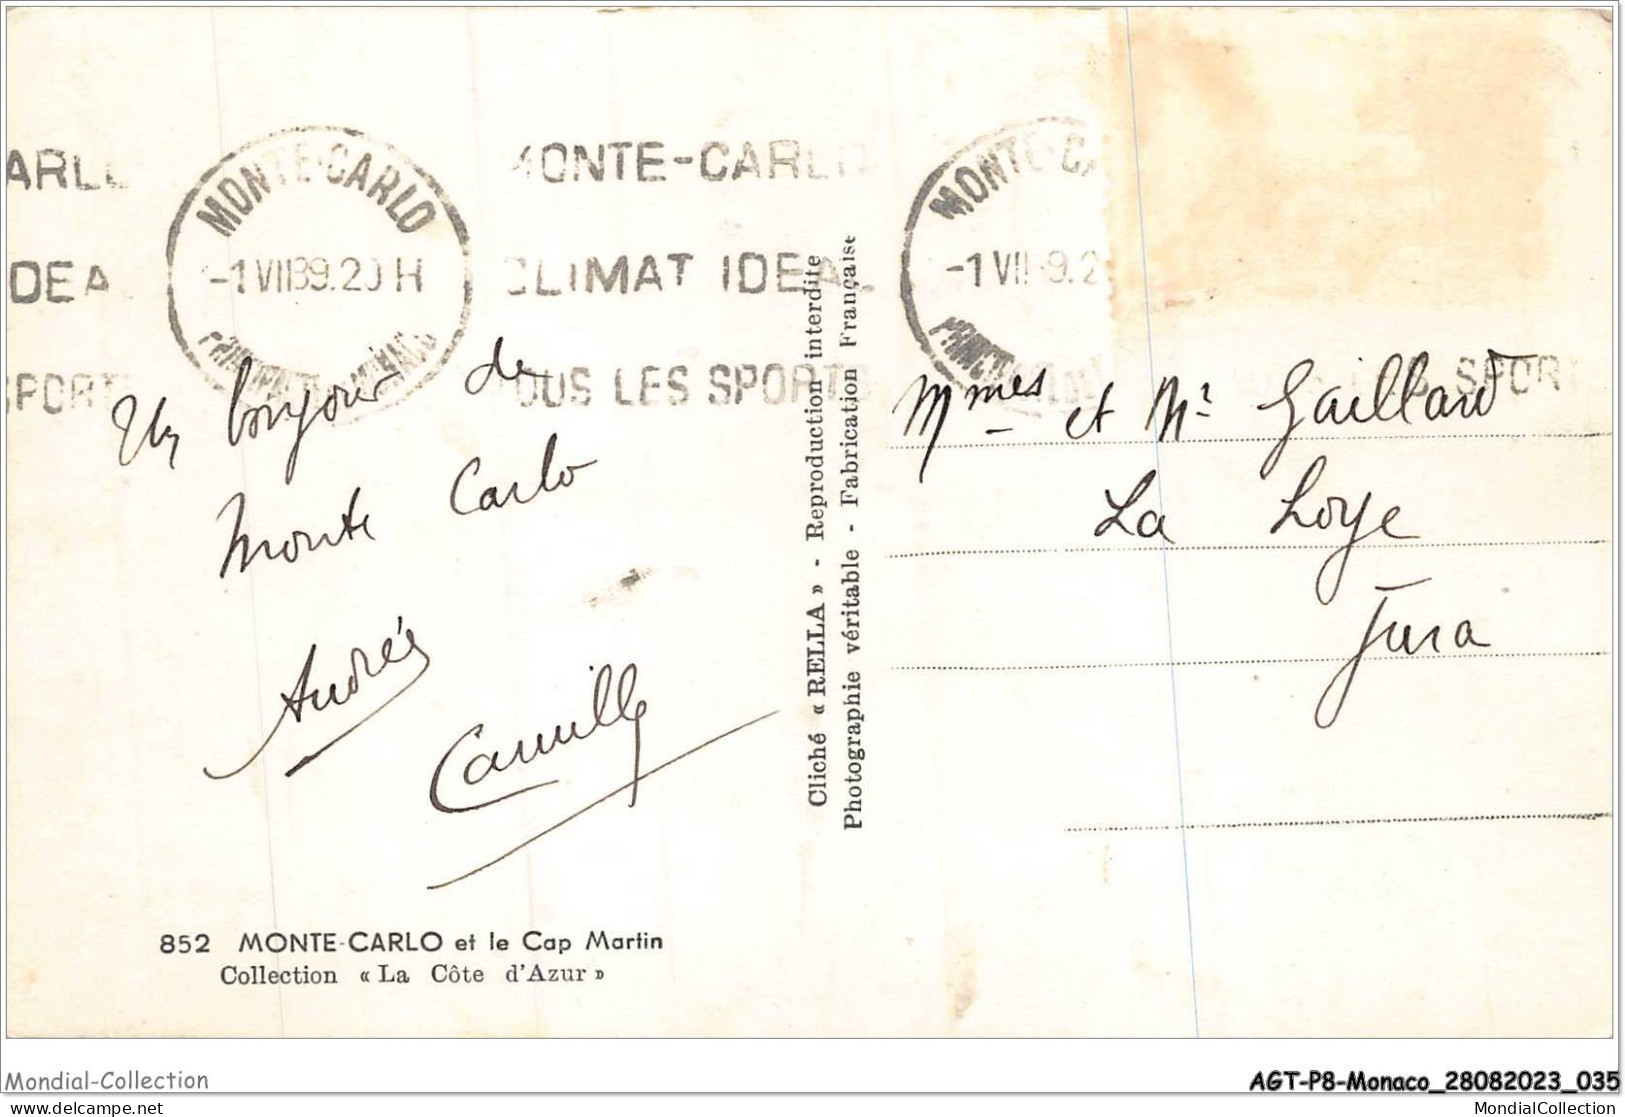 ARLO
MONTE-CARLO
-1 VII 39.20 H
PRINCIPAUTE DE MONACO
MONTE-CARLO
MONTE-CA
-1 VII 39.2
IDEAL
CLIMAT IDEAL
SPORTS
TOUS LES SPORTS
SPORT
Un bonjour de
Monte Carlo
Andrée
Camille
852 MONTE-CARLO et le Cap Martin
Collection « La Côte d'Azur »
Cliché « RELLA » - Reproduction interdite
Photographie véritable - Fabrication Française
Mmes et Mr Gaillard
La Loye
Jura
Mondial-Collection
AGT-P8-Monaco_28082023_035
delcampe.net
MondialCollection